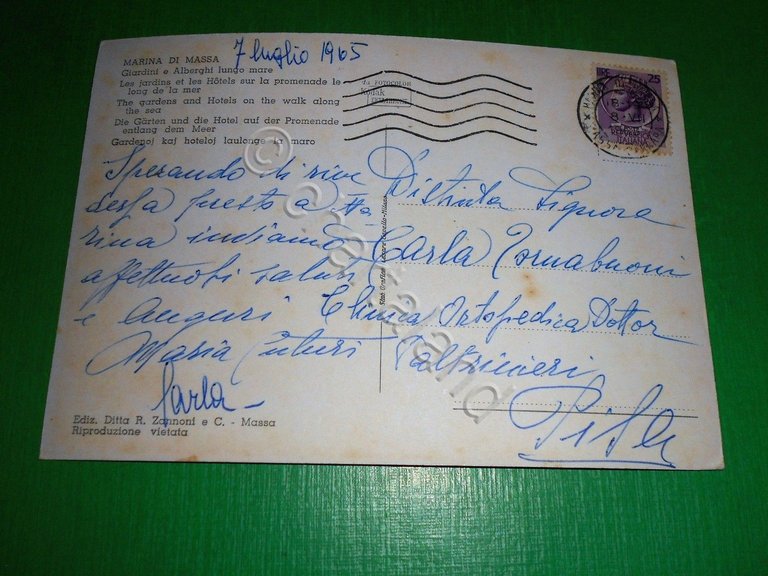 7 luglio 1965
MARINA DI MASSA
Giardini e Alberghi lungo mare
Les jardins et les Hôtels sur la promenade le
long de la mer
The gardens and Hotels on the walk along
the sea
Die Gärten und die Hotel auf der Promenade
entlang dem Meer
Gardenoj kaj hoteloj laulonge la maro
FOTOCOLOR
Kodak
Sperando di rive
derla presto a Ma
rina inviamo
affettuosi saluti
e Auguri
Maria
Carla
Ediz. Ditta R. Zannoni e C. - Massa
Riproduzione vietata
25
ITALIANA
Distinta Signora
Carla Tornabuoni
Clinica Ortopedica Dottor
Paltrinieri
Pisa